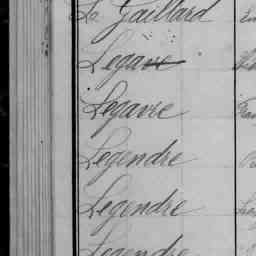 Le Gaillard
Legave
Legavre
Legendre
Legendre
Legendre